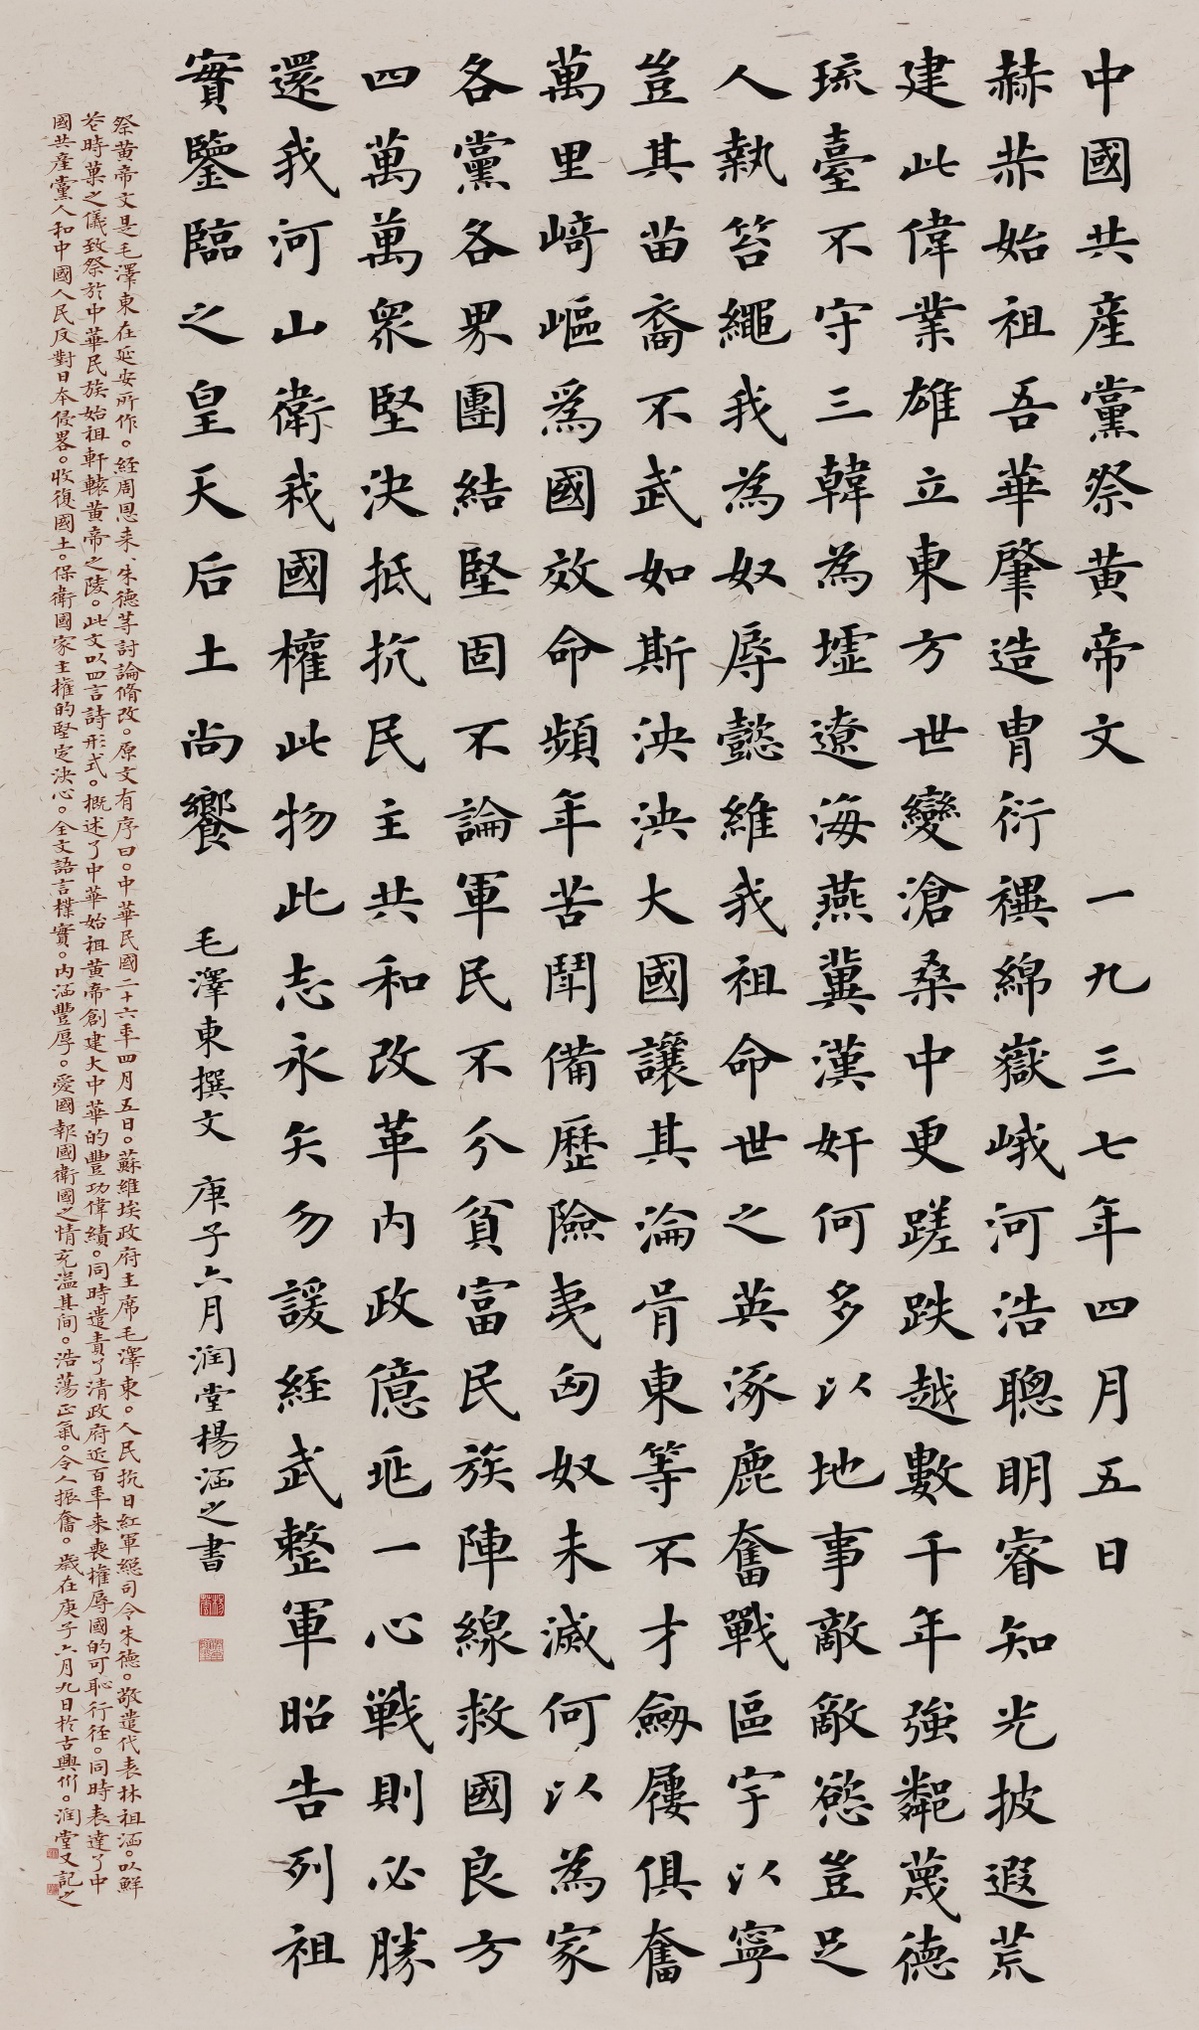 中國共產黨祭黃帝文 一九三七年四月五日
赫赫始祖吾華肇造胄衍禩綿嶽峨河浩聰明睿知光披遐荒
建此偉業雄立東方世變滄桑中更蹉跌越數千年強鄰蔑德
琉臺不守三韓為墟遼海燕冀漢奸何多以地事敵敵慾豈足
人執笞繩我為奴辱懿維我祖命世之英涿鹿奮戰區宇以寧
豈其苗裔不武如斯泱泱大國讓其淪胥東等不才劒屨俱奮
萬里崎嶇爲國效命頻年苦鬥備歷險夷匈奴未滅何以為家
各黨各界團結堅固不論軍民不分貧富民族陣線救國良方
四萬萬眾堅決抵抗民主共和改革内政億兆一心戦則必勝
還我河山衛我國權此物此志永矢勿諼経武整軍昭告列祖
實鑒臨之皇天后土尚饗 毛澤東撰文 庚子六月潤堂楊涵之書
祭黃帝文是毛澤東在延安所作。経周恩来、朱德等討論脩改。原文有序曰。中華民國二十六年四月五日。蘇維埃政府主席毛澤東。人民抗日紅軍總司令朱德。敬遣代表林祖涵。以鮮
花時菓之儀致祭於中華民族始祖軒轅黃帝之陵。此文以四言詩形式。概述了中華始祖黃帝創建大中華的豐功偉績。同時遣責了清政府近百年来喪權辱國的可恥行徑。同時表達了中
國共產黨人和中國人民反對日本侵畧。收復國土。保衛國家主權的堅定決心。全文語言樸實。内涵豐厚。愛國報國衛國之情充溢其间。浩蕩正氣。令人振奮。歲在庚子六月九日於古興州。潤堂又記之